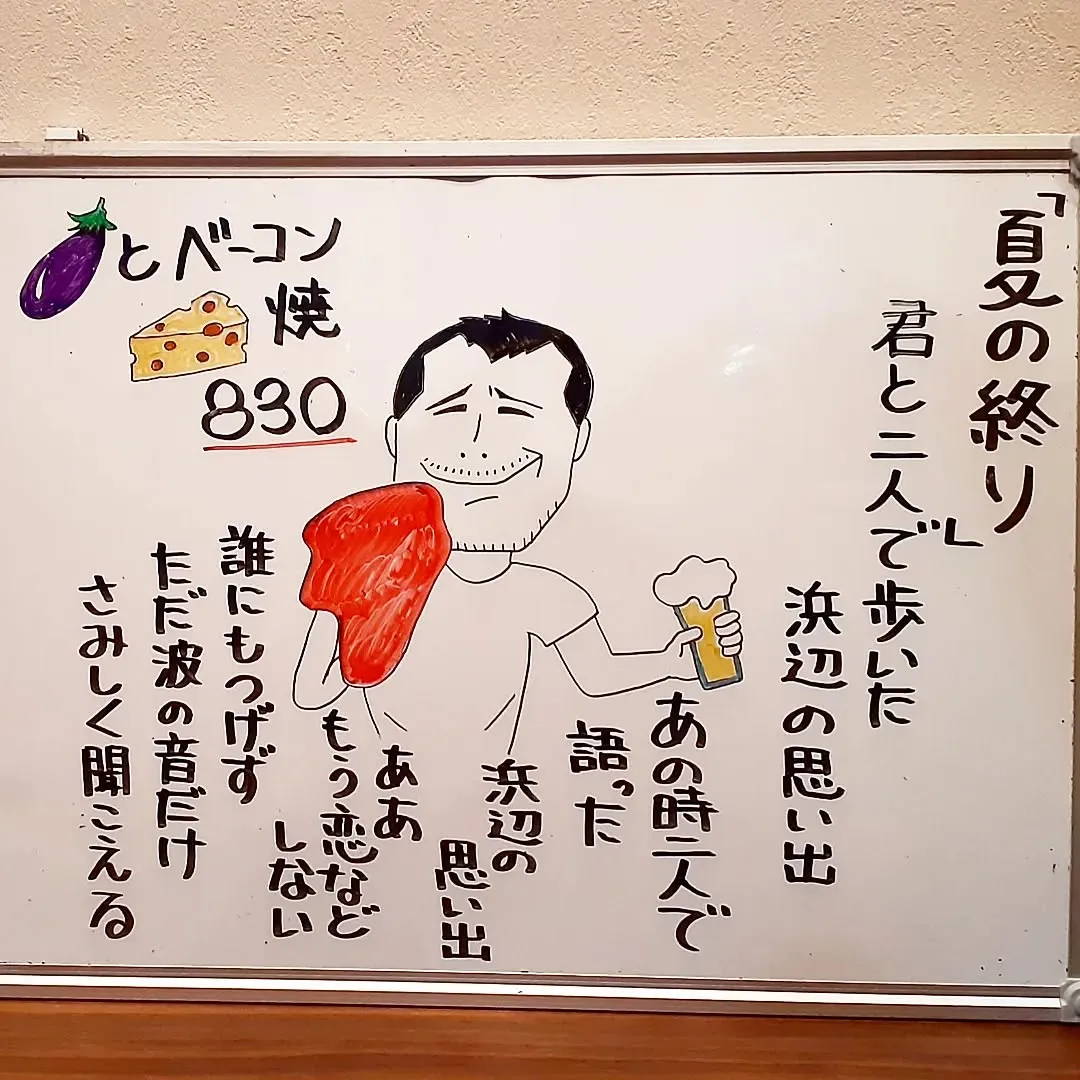 「夏の終り」
君と二人で歩いた
浜辺の思い出
あの時二人で
語った
浜辺の
思い出
ああ
もう恋など
しない
誰にもつげず
ただ波の音だけ
さみしく聞こえる
とベーコン
焼
830